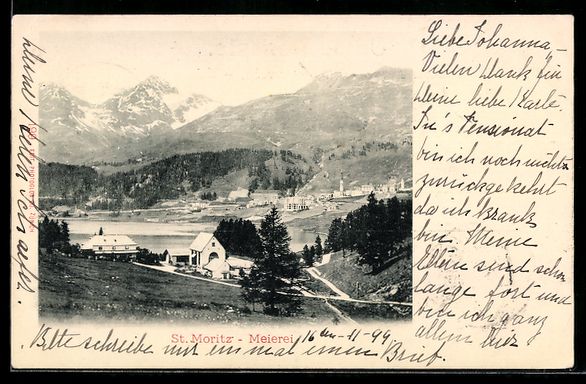 Liebe Johanna,
Vielen Dank für
Deine liebe Karte.
In's Pensionat
bin ich noch nicht
zurückgekehrt
da ich krank
bin. Meine
Eltern sind schon
lange fort und
bin ich ganz
allein hier
St. Moritz - Meierei
16 11 - 99
Bitte schreibe mir einmal einen Brief.